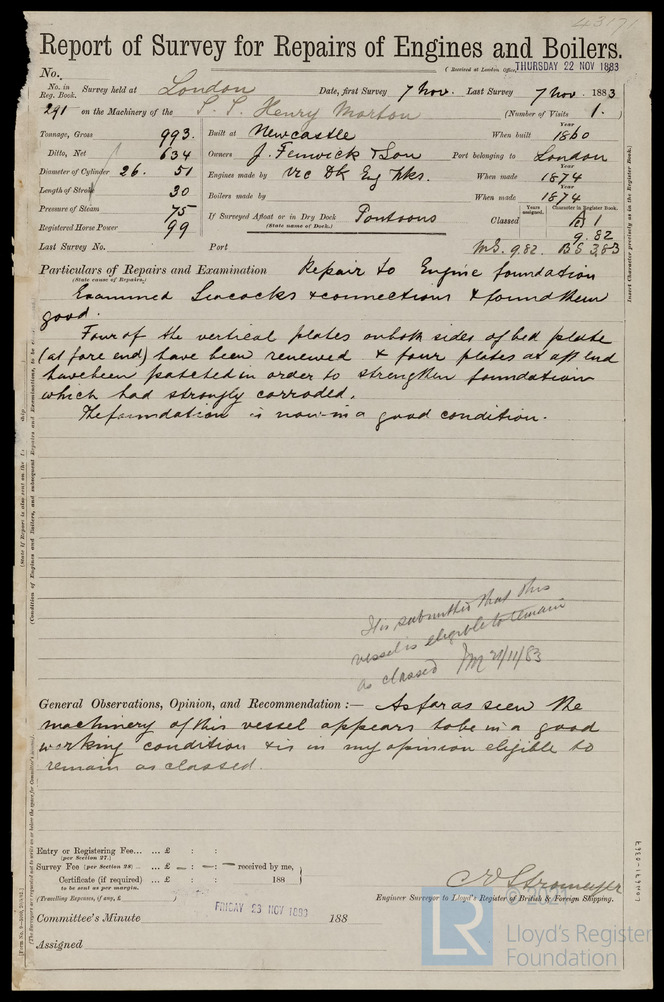 43171
Report of Survey for Repairs of Engines and Boilers.
No.
(Received at London Office, THURSDAY 22 NOV 1883
No. in Reg. Book. Survey held at London Date, first Survey 7 Nov. Last Survey 7 Nov. 1883
291 on the Machinery of the S. S. Henry Morton (Number of Visits 1.)
Tonnage, Gross 993. Built at Newcastle When built Year 1860
Ditto, Net 634 Owners J. Fenwick & Son Port belonging to London
Diameter of Cylinder 26. 51 Engines made by Vic Dk Eng Wks. When made Year 1874
Length of Stroke 30 Boilers made by When made Year 1874
Pressure of Steam 75 If Surveyed Afloat or in Dry Dock Pontoons Classed Years assigned. Character in Register Book. A 1
Registered Horse Power 99 (State name of Dock.) 9.82
Last Survey No. Port MS. 9.82. BS 3.83
Insert Character precisely as in the Register Book.
Particulars of Repairs and Examination Repair to Engine foundation
(State cause of Repairs.)
Examined Seacocks & connections & found them
good.
Four of the vertical plates on both sides of bed plate
(at fore end) have been renewed & four plates at aft end
have been patched in order to strengthen foundation
which had strongly corroded.
The foundation is now in a good condition.
It is submitted that this
vessel is eligible to remain
as classed 21/11/83
General Observations, Opinion, and Recommendation :— As far as seen the
machinery of this vessel appears to be in a good
working condition & is in my opinion eligible to
remain as classed.
Entry or Registering Fee... ... £ : :
(per Section 27.)
Survey Fee (per Section 28) .. ... £ — : — : — received by me,
Certificate (if required) ... £ : : 188
to be sent as per margin.
(Travelling Expenses, if any, £ )
C E Stromeyer
Engineer Surveyor to Lloyd's Register of British & Foreign Shipping.
Committee's Minute FRIDAY 23 NOV 1883 188
Assigned
LR
© 2021
Lloyd's Register
Foundation